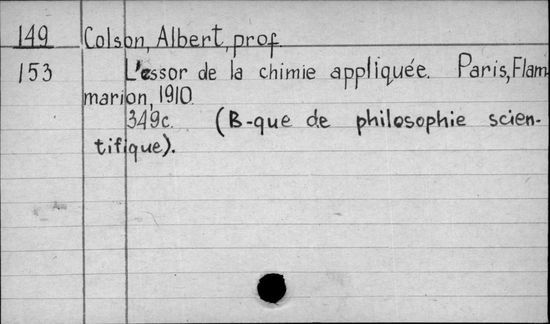 149 Colson, Albert, prof.
153 L'essor de la chimie appliquée. Paris, Flam-
marion, 1910.
349c. (B-que de philosophie scien-
tifique).